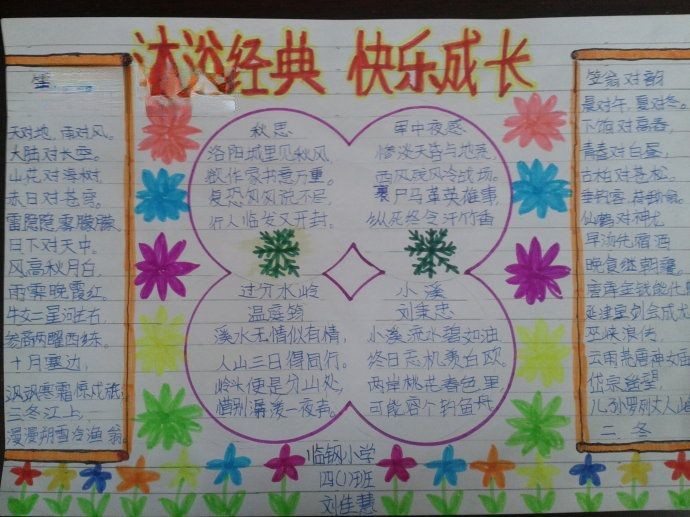 沐浴经典 快乐成长
天对地，雨对风。
大陆对长空。
山花对海树，
赤日对苍穹。
雷隐隐，雾朦朦。
日下对天中。
风高秋月白，
雨霁晚霞红。
牛女二星河左右，
参商两曜西东。
十月塞边，
飒飒寒霜惊戍旅，
三冬江上，
漫漫朔雪冷渔翁
秋思
洛阳城里见秋风，
欲作家书意万重。
复恐匆匆说不尽，
行人临发又开封。
军中夜感
惨淡天昏与地荒，
西风残月冷战场。
裹尸马革英雄事，
纵死终令汗竹香
过分水岭
温庭筠
溪水无情似有情，
入山三日得同行。
岭头便是分山处，
惜别潺湲一夜声。
小溪
刘秉忠
小溪流水碧如油
终日忘机羡白欧
两岸桃花春色里
可能容个钓鱼舟
笠翁对韵
晨对午，夏对冬。
下饷对高舂，
青春对白昼，
古柏对苍松。
垂钓客，荷锄翁。
仙鹤对神龙
早汤先宿酒
晚食继朝饔。
延津里剑会成龙
巫峡浪传，
云雨荒唐神女庙
岱宗遥望，
儿孙罗列丈人峰
二冬
临钢小学
四(1)班
刘佳慧